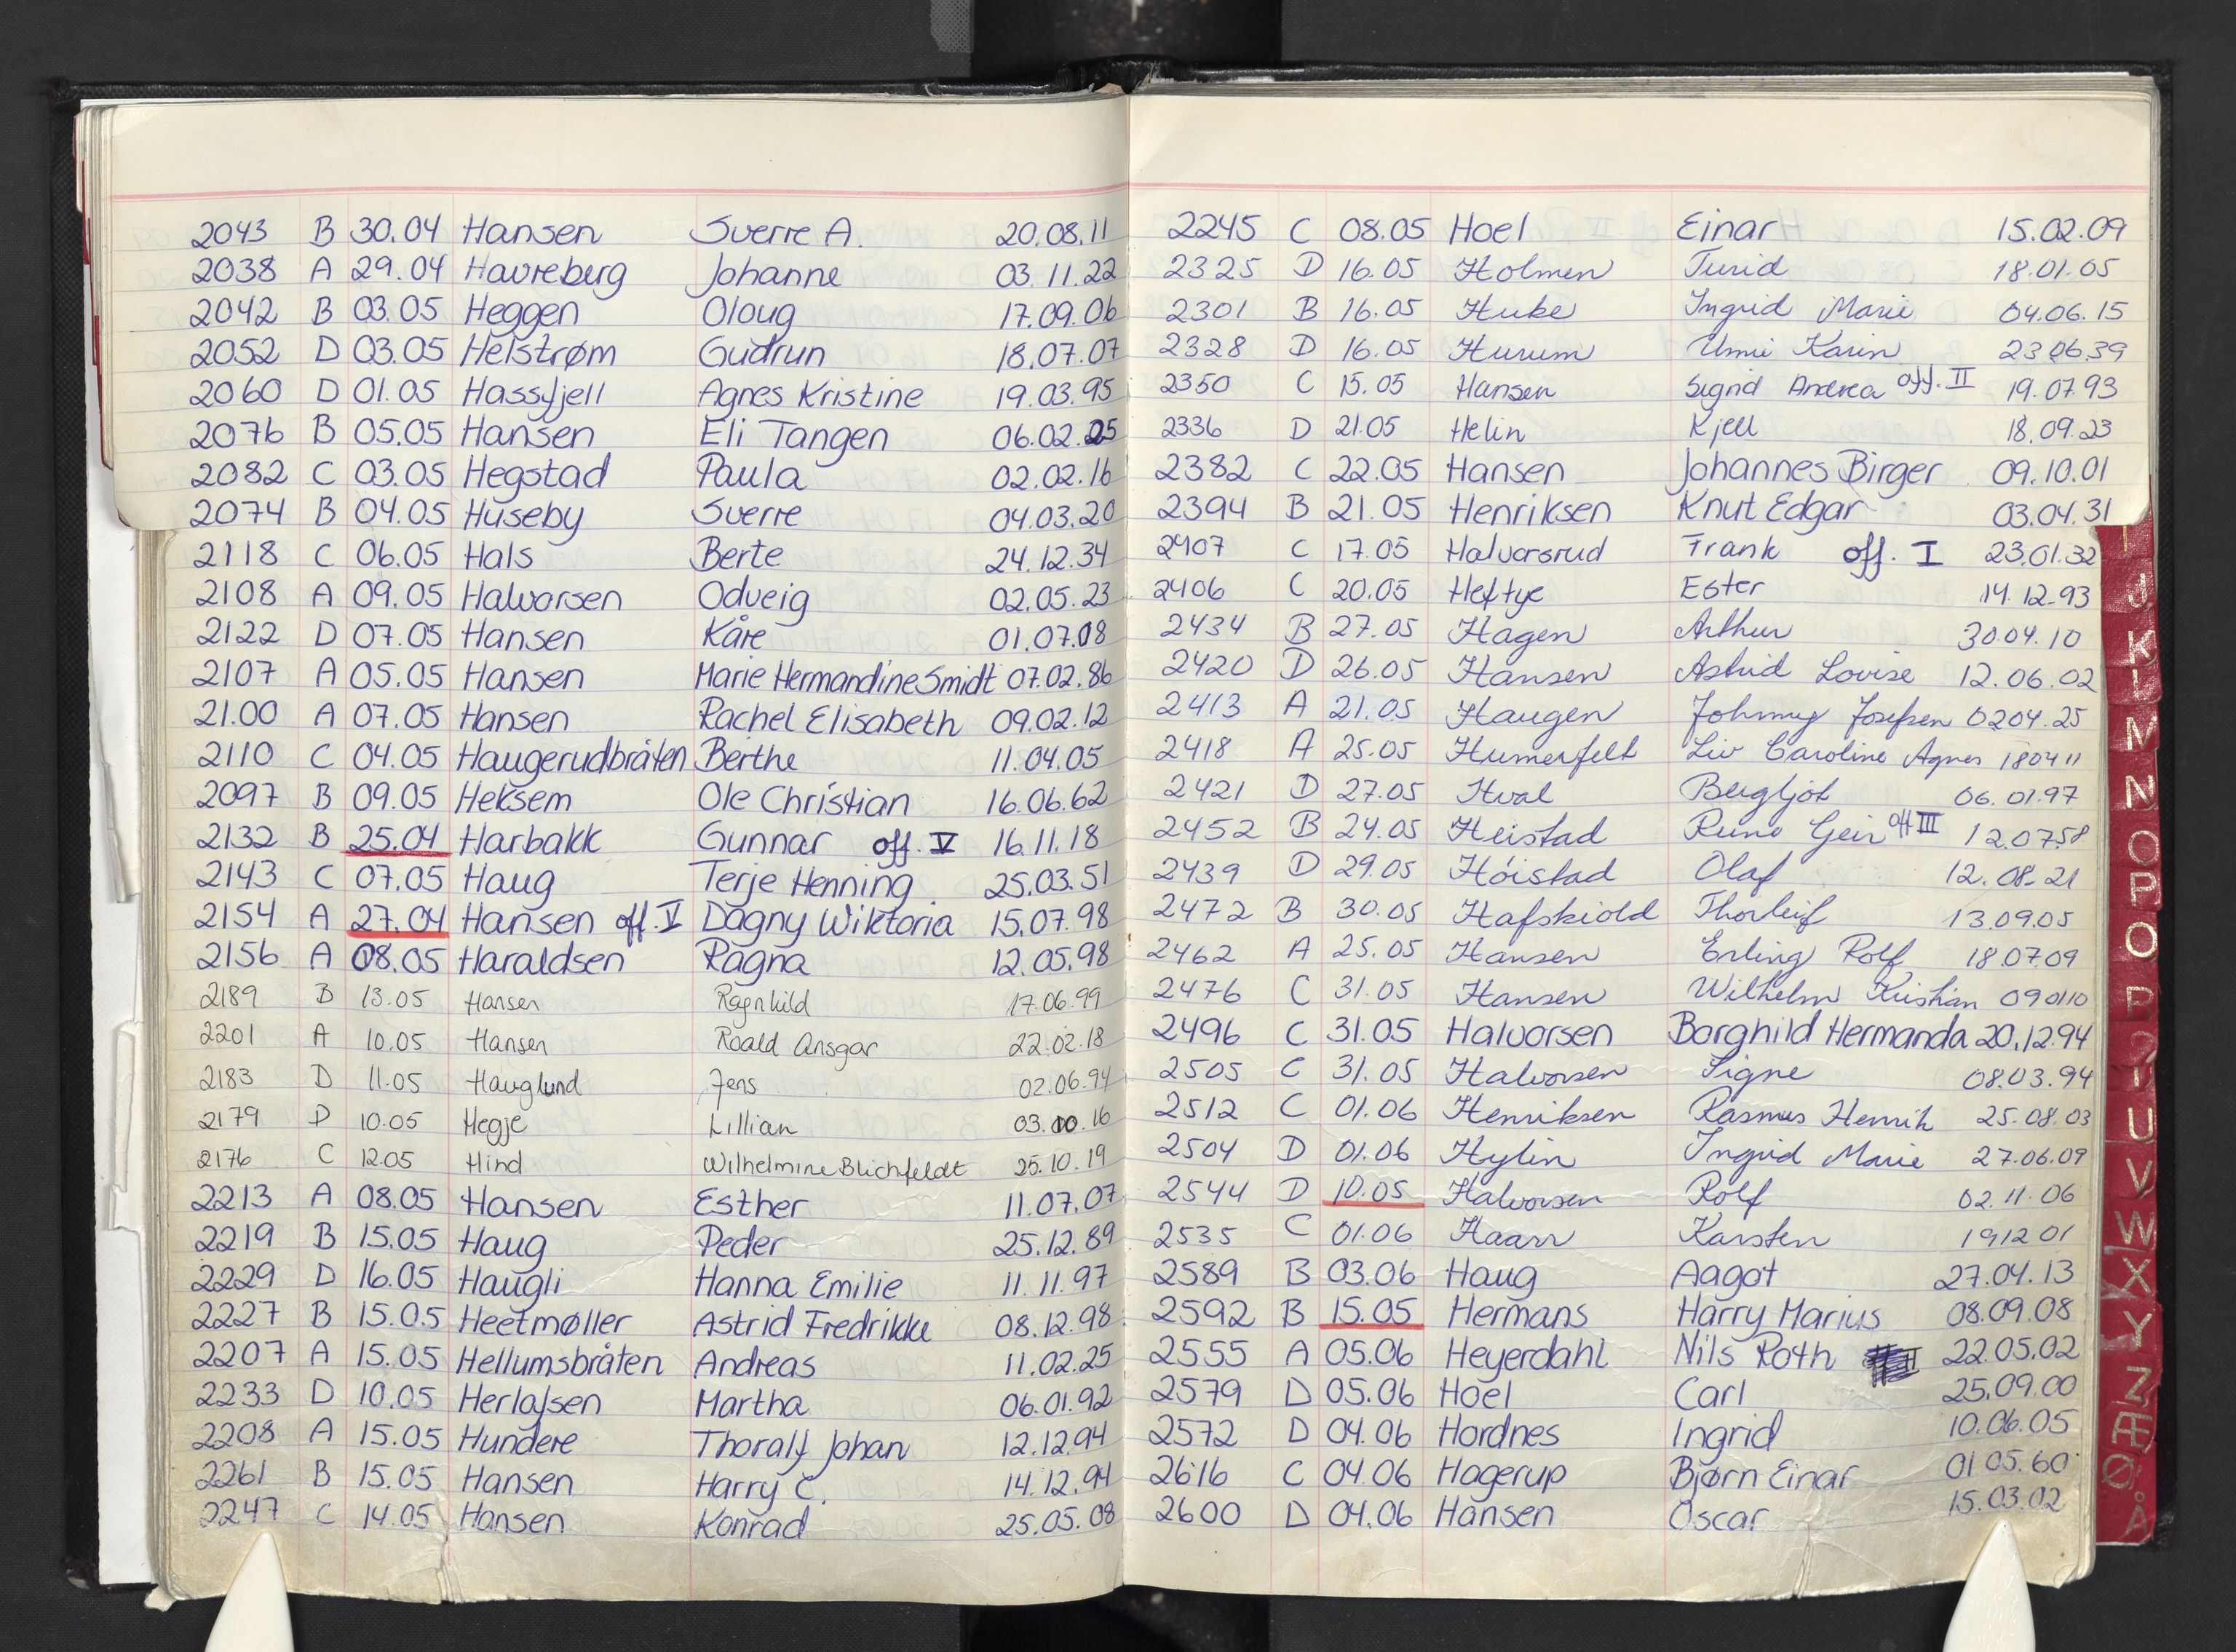 2043 B 30.04 Hansen Sverre A. 20.08.11
2038 A 29.04 Havreberg Johanne 03.11.22
2042 B 03.05 Heggen Oloug 17.09.06
2052 D 03.05 Helstrøm Gudrun 18.07.07
2060 D 01.05 Hassfjell Agnes Kristine 19.03.95
2076 B 05.05 Hansen Eli Tangen 06.02.25
2082 C 03.05 Hegstad Paula 02.02.16
2074 B 04.05 Huseby Sverre 04.03.20
2118 C 06.05 Hals Berte 24.12.34
2108 A 09.05 Halvorsen Odveig 02.05.23
2122 D 07.05 Hansen Kåre 01.07.08
2107 A 05.05 Hansen Marie Hermandine Smidt 07.02.86
21.00 A 07.05 Hansen Rachel Elisabeth 09.02.12
2110 C 04.05 Haugerudbråten Berthe 11.04.05
2097 B 09.05 Heksem Ole Christian 16.06.62
2132 B 25.04 Harbakk Gunnar off. V 16.11.18
2143 C 07.05 Haug Terje Henning 25.03.51
2154 A 27.04 Hansen off. V Dagny Wiktoria 15.07.98
2156 A 08.05 Haraldsen Ragna 12.05.98
2189 B 13.05 Hansen Ragnhild 17.06.99
2201 A 10.05 Hansen Roald Ansgar 22.02.18
2183 D 11.05 Hauglund Jens 02.06.94
2179 D 10.05 Hegje Lillian 03.10.16
2176 C 12.05 Hind Wilhelmine Blichfeldt 25.10.19
2213 A 08.05 Hansen Esther 11.07.07
2219 B 15.05 Haug Peder 25.12.89
2229 D 16.05 Haugli Hanna Emilie 11.11.97
2227 B 15.05 Heetmøller Astrid Fredrikke 08.12.98
2207 A 15.05 Hellumsbråten Andreas 11.02.25
2233 D 10.05 Herlofsen Martha 06.01.92
2208 A 15.05 Hundere Thoralf Johan 12.12.94
2261 B 15.05 Hansen Harry C. 14.12.94
2247 C 14.05 Hansen Konrad 25.05.08
2245 C 08.05 Hoel Einar 15.02.09
2325 D 16.05 Holmen Turid 18.01.05
2301 B 16.05 Huke Ingrid Marie 04.06.15
2328 D 16.05 Hurum Unni Karin 23.06.39
2350 C 15.05 Hansen Sigrid Andrea off. II 19.07.93
2336 D 21.05 Helin Kjell 18.09.23
2382 C 22.05 Hansen Johannes Birger 09.10.01
2394 B 21.05 Henriksen Knut Edgar 03.04.31
2407 C 17.05 Halvorsrud Frank off. I 23.01.32
2406 C 20.05 Heftye Ester 14.12.93
2434 B 27.05 Hagen Arthur 30.04.10
2420 D 26.05 Hansen Astrid Lovise 12.06.02
2413 A 21.05 Haugen Johnny Josefsen 02.04.25
2418 A 25.05 Humerfelt Liv Caroline Agnes 180411
2421 D 27.05 Hval Bergljot 06.01.97
2452 B 24.05 Heistad Rune Geir off III 12.07.58
2439 D 29.05 Hóistad Olaf 12.08.21
2472 B 30.05 Hafskiold Thorleif 13.09.05
2462 A 25.05 Hansen Erling Rolf 18.07.09
2476 C 31.05 Hansen Wilhelm Kristian 090110
2496 C 31.05 Halvorsen Borghild Hermanda 20.12.94
2505 C 31.05 Halvorsen Signe 08.03.94
2512 C 01.06 Henriksen Rasmus Henrik 25.08.03
2504 D 01.06 Hylin Ingrid Marie 27.06.09
2544 D 10.05 Halvorsen Rolf 02.11.06
2535 C 01.06 Haarr Karsten 191201
2589 B 03.06 Haug Aagot 27.04.13
2592 B 15.05 Hermans Harry Marius 08.09.08
2555 A 05.06 Heyerdahl Nils Roth 22.05.02
2579 D 05.06 Hoel Carl 25.09.00
2572 D 04.06 Hordnes Ingrid 10.06.05
2616 C 04.06 Hagerup Bjørn Einar 01.05.60
2600 D 04.06 Hansen Oscar 15.03.02
J
K
L
M
N
O
P
Q
U
V
W
X
Y
Z
Æ
Ø
Å